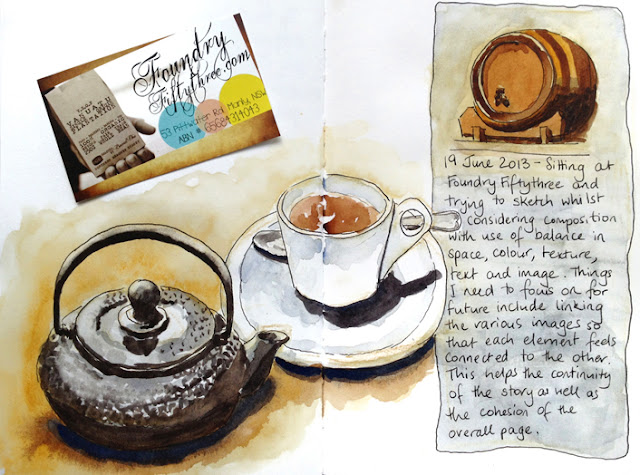 Foundry
Fiftythree.com
53 Pittwater Rd, Manly, NSW
ABN # 65084314043
VANUATU
PLANTATION
19 June 2013 - Sitting at
Foundry Fiftythree and
trying to sketch whilst
considering composition
with use of balance in
space, colour, texture,
text and image. Things
I need to focus on for
future include linking
the various images so
that each element feels
connected to the other.
This helps the continuity
of the story as well as
the cohesion of the
overall page.